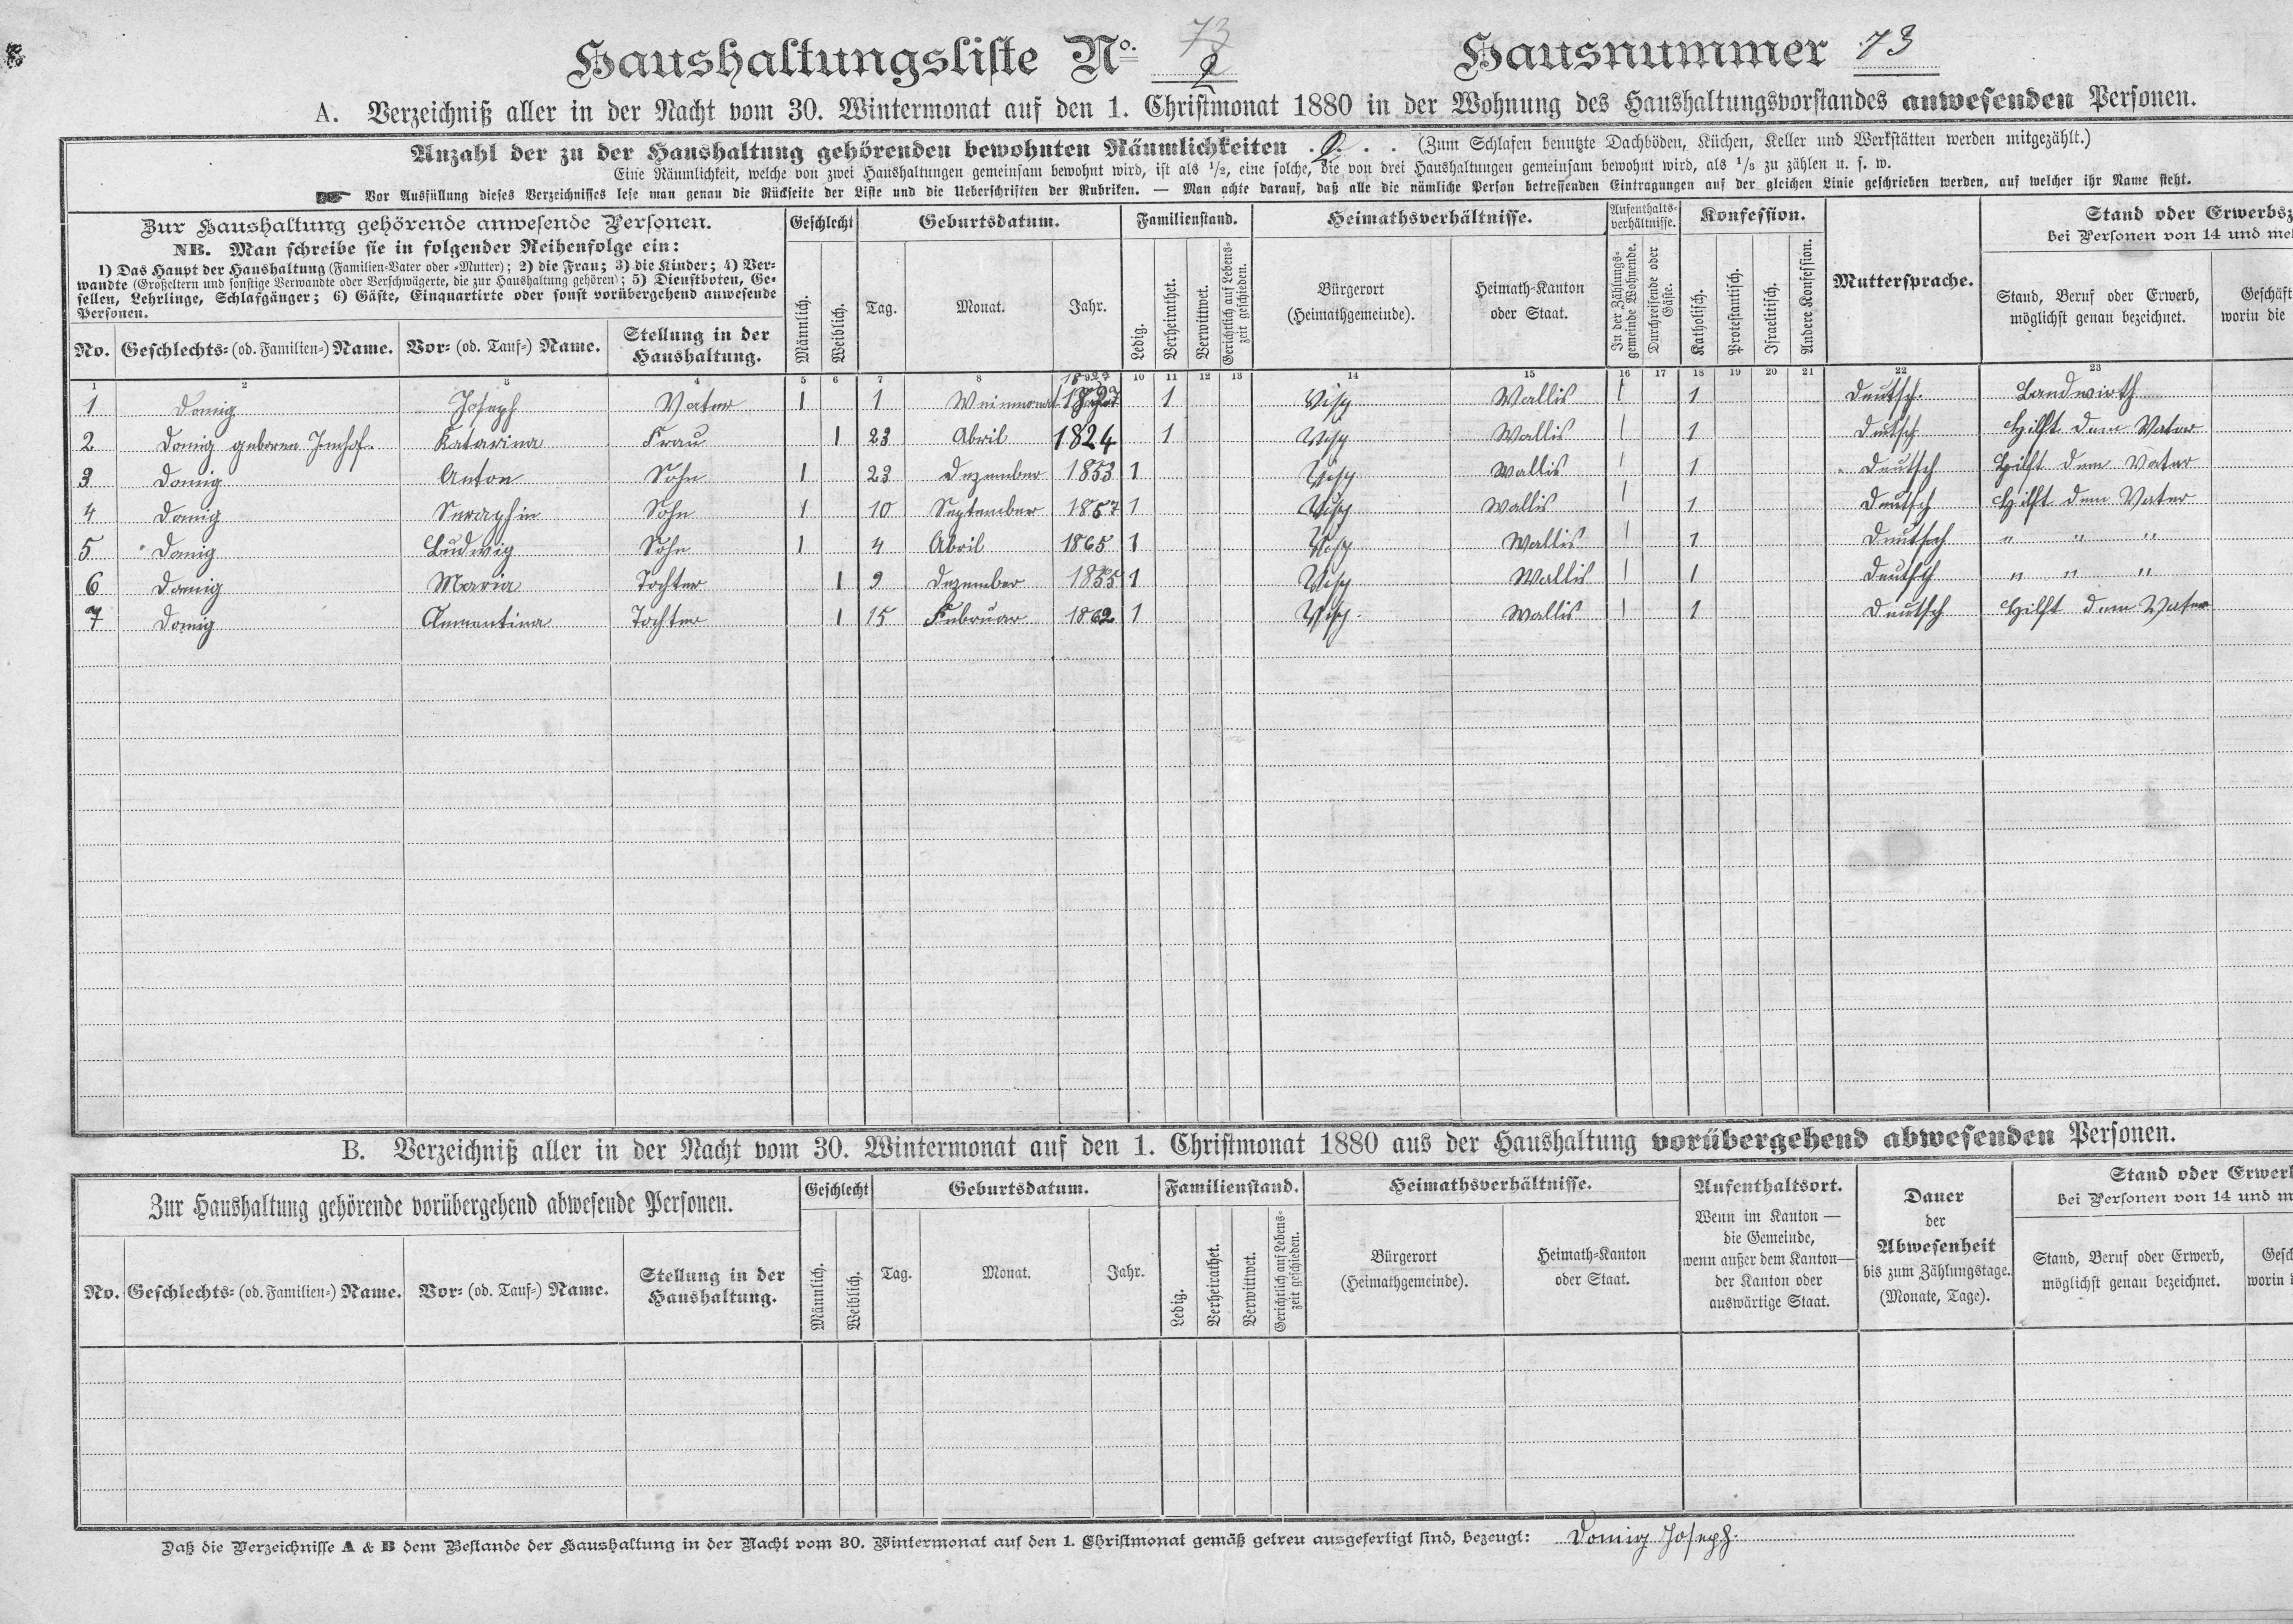 Haushaltungsliste No. 73 2 Hausnummer 73
A. Verzeichniß aller in der Nacht vom 30. Wintermonat auf den 1. Christmonat 1880 in der Wohnung des Haushaltungsvorstandes anwesenden Personen.
Anzahl der zu der Haushaltung gehörenden bewohnten Räumlichkeiten . 2. . . (Zum Schlafen benutzte Dachböden, Küchen, Keller und Werkstätten werden mitgezählt.)
Eine Räumlichkeit, welche von zwei Haushaltungen gemeinsam bewohnt wird, ist als 1/2, eine solche, die von drei Haushaltungen gemeinsam bewohnt wird, als 1/3 zu zählen u. s. w.
☛ Vor Ausfüllung dieses Verzeichnisses lese man genau die Rückseite der Liste und die Ueberschriften der Rubriken. — Man achte darauf, daß alle die nämliche Person betreffenden Eintragungen auf der gleichen Linie geschrieben werden, auf welcher ihr Name steht.
Zur Haushaltung gehörende anwesende Personen.
NB. Man schreibe sie in folgender Reihenfolge ein:
1) Das Haupt der Haushaltung (Familien-Vater oder -Mutter); 2) die Frau; 3) die Kinder; 4) Ver-
wandte (Großeltern und sonstige Verwandte oder Verschwägerte, die zur Haushaltung gehören); 5) Dienstboten, Ge-
sellen, Lehrlinge, Schlafgänger; 6) Gäste, Einquartirte oder sonst vorübergehend anwesende
Personen.
No. Geschlechts- (od. Familien-) Name. Vor- (od. Tauf-) Name. Stellung in der
Haushaltung.
Geschlecht
Männlich. Weiblich.
Geburtsdatum.
Tag. Monat. Jahr.
Familienstand.
Ledig. Verheirathet. Verwittwet. Gerichtlich auf Lebens-
zeit geschieden.
Heimathsverhältnisse.
Bürgerort
(Heimathgemeinde).
Heimath-Kanton
oder Staat.
Aufenthalts-
verhältnisse.
In der Zählungs-
gemeinde Wohnende.
Durchreisende oder
Gäste.
Konfession.
Katholisch. Protestantisch. Israelitisch. Andere Konfession.
Muttersprache.
Stand oder Erwerbsz
bei Personen von 14 und meh
Stand, Beruf oder Erwerb,
möglichst genau bezeichnet.
Geschäft
worin die
1 2 3 4 5 6 7 8 9 10 11 12 13 14 15 16 17 18 19 20 21 22 23
1827
1 Domig Joseph Vater 1 1 Weinmonat 1827 1 Visp Wallis 1 1 Deutsch. Landwirth
2 Domig geboren Imhof. Katarina Frau 1 23 Abril 1824 1 Visp Wallis 1 1 Deutsch Hilft dem Vater
3 Domig Anton Sohn 1 23 Dezember 1853 1 Visp Wallis 1 1 Deutsch Hilft dem Vater
4 Domig Seraphin Sohn 1 10 September 1857 1 Visp Wallis 1 1 Deutsch Hilft dem Vater
5 Domig Ludwig Sohn 1 4 Abril 1865 1 Visp Wallis 1 1 Deutsch " " "
6 Domig Maria Tochter 1 9 Dezember 1855 1 Visp Wallis 1 1 Deutsch " " "
7 Domig Clementina Tochter 1 15 Februar 1862 1 Visp. Wallis 1 1 Deutsch Hilft dem Vater
B. Verzeichniß aller in der Nacht vom 30. Wintermonat auf den 1. Christmonat 1880 aus der Haushaltung vorübergehend abwesenden Personen.
Zur Haushaltung gehörende vorübergehend abwesende Personen.
No. Geschlechts- (od. Familien-) Name. Vor- (od. Tauf-) Name. Stellung in der
Haushaltung.
Geschlecht
Männlich. Weiblich.
Geburtsdatum.
Tag. Monat. Jahr.
Familienstand.
Ledig. Verheirathet. Verwittwet. Gerichtlich auf Lebens-
zeit geschieden.
Heimathsverhältnisse.
Bürgerort
(Heimathgemeinde).
Heimath-Kanton
oder Staat.
Aufenthaltsort.
Wenn im Kanton —
die Gemeinde,
wenn außer dem Kanton—
der Kanton oder
auswärtige Staat.
Dauer
der
Abwesenheit
bis zum Zählungstage.
(Monate, Tage).
Stand oder Erwerb
bei Personen von 14 und m
Stand, Beruf oder Erwerb,
möglichst genau bezeichnet.
Gesch
worin
Daß die Verzeichnisse A & B dem Bestande der Haushaltung in der Nacht vom 30. Wintermonat auf den 1. Christmonat gemäß getreu ausgefertigt sind, bezeugt: Domig Joseph.